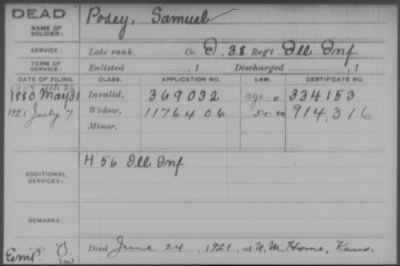 DEAD
NAME OF SOLDIER: Posey, Samuel
SERVICE: Late rank, Co. D. 38 Reg't Ill Inf
TERM OF SERVICE: Enlisted , 1 Discharged , 1
DATE OF FILING. CLASS. APPLICATION NO. LAW. CERTIFICATE NO.
1880 May 31 Invalid, 369032 334153
1921 July 7 Widow, 1176406 914,316
Minor,
ADDITIONAL SERVICES: H 56 Ill Inf
REMARKS:
Died June 24, 1921, at N.M. Home, Kans.